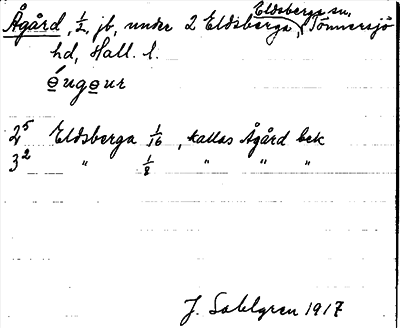 Ågård, 1/2, jb, under 2 Eldsberga, Eldsberga sn, Tönnersjö
hd, Hall. l.
2⁵ Eldsberga 1/16, kallas Ågård bek
3² " 1/8 " " "
J. Sahlgren 1917